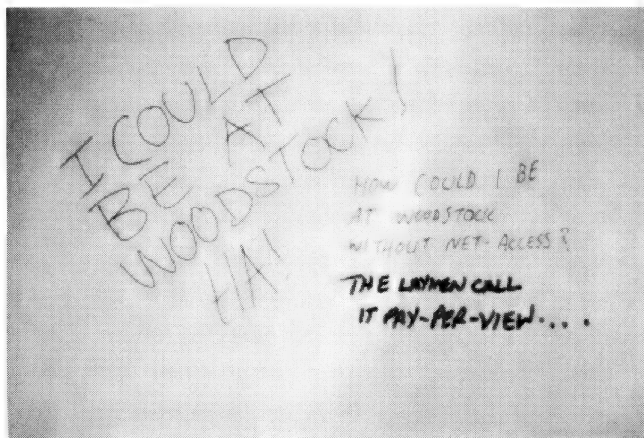 I COULD
BE AT
WOODSTOCK!
HA!
HOW COULD I BE
AT WOODSTOCK
WITHOUT NET-ACCESS?
THE LAYMEN CALL
IT PAY-PER-VIEW....